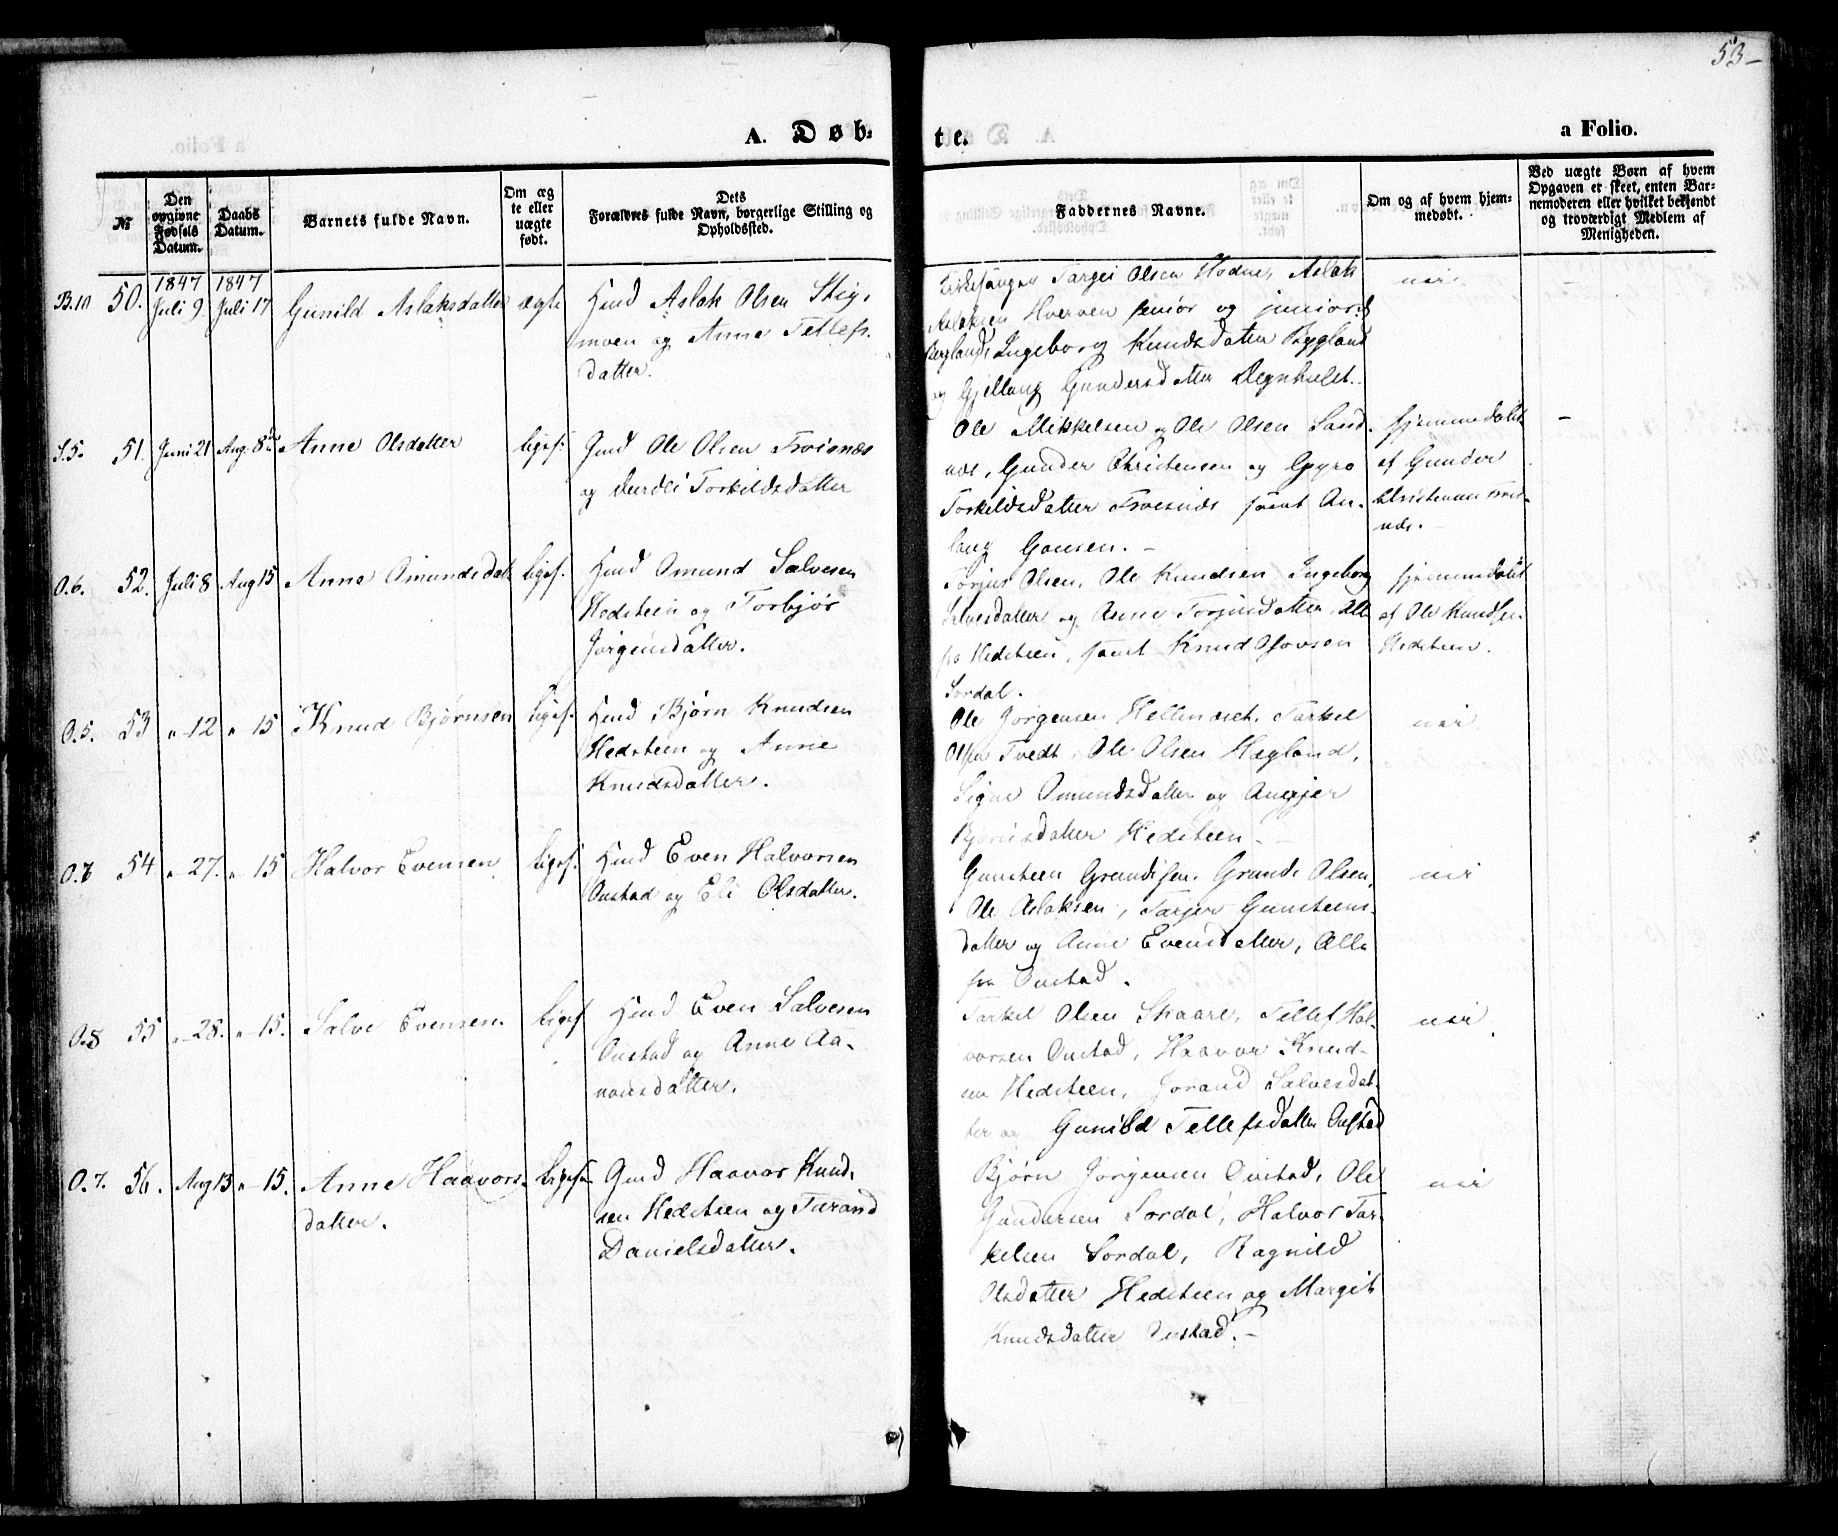 53-
A. Døb-
te.
a Folio.
№
Den opgivne Fødsels Datum.
Daabs Datum.
Barnets fulde Navn.
Om ægte eller uægte født.
Dets Forældres fulde Navn, borgerlige Stilling og Opholdssted.
Faddernes Navne.
Om og af hvem hjemmedøbt.
Ved uægte Børn af hvem Opgaven er skeet, enten Barnemoderen eller hvilket bekjendt og troværdigt Medlem af Menigheden.
1847 1847
B.10 50. Juli 9 Juli 17 Gunild Aslaksdatter ægte
Aslak Olsen Stig-
moen og Anne Tellefs-
datter.
Kirkesanger Targei Olsen Hodne, Aslak
Aslaksen Hverven senior og junior,
Berglands Ingeborg Knudsdatter Bygland
og Gjellaug Gundersdatter
nei
-
S.5. 51. Juni 21 Aug. 8de Anne Olsdatter liges.
Gmd Ole Olsen Froisnæs
og Torkildsdatter
Ole Mikkelsen og Ole Olsen Sand-
næs, Gunder Christensen og Gyro
Torkildsdatter samt An-
laug Gousen. -
hjemmedøbt
af Gunder
Christensen
næs. -
-
O.6. 52. Juli 8 Aug 15 Anne Omundsdatt ligs.
Hmd Omund Salvesen
Hedsteen og Torbjør
Jørgensdatter.
Torjus Olsen, Ole Knudsen, Ingeborg
Salvesdatter og Anne Torjusdatter, Alle
fra Hedsteen, samt Knud
Sordal.
hjemmedøbt
af Ole Knudsen
Hedsteen.
O.5. 53 " 12 " 15 Knud Bjørnsen ligs.
Hmd Bjørn Knudsen
Hedsteen og Anne
Knudsdatter.
Ole Jørgensen Tarkel
Olsen Tvedt, Ole Olsen Hægland,
Signe Omundsdatter og
Bjørnsdatter Hedsteen -
nei
O.7 54. " 27. " 15 Halvor Evensen ligs.
Hmd Even Halvorsen
Oustad og Eli Olsdatter.
Gunsteen Grundesen, Grunde Olsen,
Ole Aslaksen, Tarjer Gunsteens-
datter og Anne Evensdatter, Alle
fra Oustad.
nei
O.8 55 " 28. " 15. Salve Evensen. ligs.
Hmd Even Salvesen
Oustad og Anne Aa-
nonsdatter.
Tarkel Olsen Skaare, Tellef Hal-
vorsen Oustad, Haavor Knud-
sen Hedsteen, Jorand Salvesdat-
ter og Gunild Tellefsdatter Oustad
nei.
O.7. 56. Aug 13 " 15. Anne Haavors-
datter.
ligs.
Gmd Haavor Knud-
sen Hedsteen og Tarand
Danielsdatter.
Bjørn Jørgensen Oustad, Ole
Gundersen Sordal, Halvor Tar-
kelsen Sordal, Ragnild
Olsdatter Hedsteen og Margit
Knudsdatter Oustad. -
nei